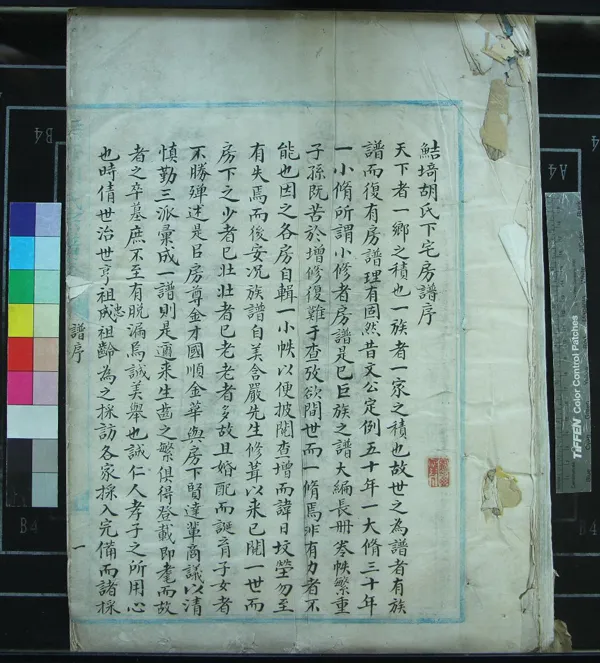 鮚埼胡氏下宅房譜序
天下者一鄉之積也一族者一家之積也故世之為譜者有族
譜而復有房譜理有固然昔文公定例五十年一大脩三十年
一小脩所謂小修者房譜是已巨族之譜大編長册卷帙繁重
子孫既苦於增修復難于查攷欲閱世而一脩焉非有力者不
能也因之各房自輯一小帙以便披閱查增而諱日坟塋勿至
有失焉而後安况族譜自美含嚴先生修葺以来已閱一世而
房下之少者已壯壯者已老老者多故且婚配而誕育子女者
不勝殫述是㠯房尊金才國順金華與房下賢達輩商議以清
慎勤三派彙成一譜則是邇来生齒之繁俱得登載即耄而故
者之卒墓庶不至有脱漏焉誠美舉也誠仁人孝子之所用心
也時倩世治世亨祖成忠祖齡為之採訪各家採入完備而諸採
譜序
一
TIFFEN Color Control Patches
B4
A4
B4
A4